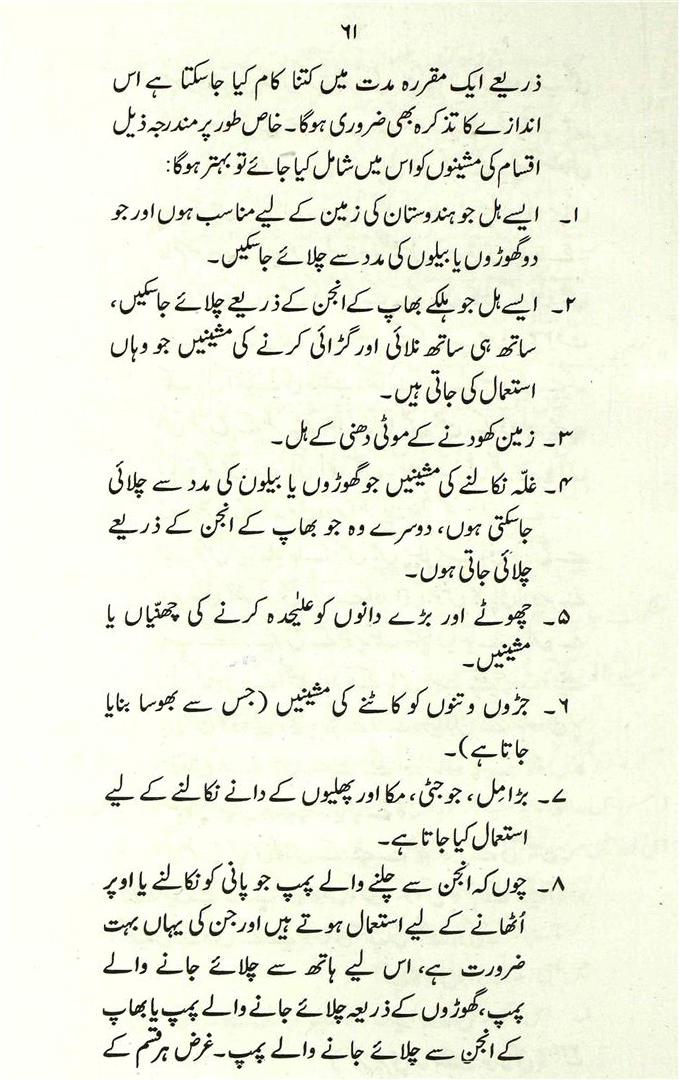 ۶۱
ذریعے ایک مقررہ مدت میں کتنا کام کیا جاسکتا ہے اس
اندازے کا تذکرہ بھی ضروری ہوگا۔ خاص طور پر مندرجہ ذیل
اقسام کی مشینوں کو اس میں شامل کیا جائے تو بہتر ہوگا:
۱۔ ایسے ہل جو ہندوستان کی زمین کے لیے مناسب ہوں اور جو
دو گھوڑوں یا بیلوں کی مدد سے چلائے جاسکیں۔
۲۔ ایسے ہل جو ہلکے بھاپ کے انجن کے ذریعے چلائے جاسکیں،
ساتھ ہی ساتھ نلائی اور گڑائی کرنے کی مشینیں جو وہاں
استعمال کی جاتی ہیں۔
۳۔ زمین کھودنے کے موٹی دھنی کے ہل۔
۴۔ غلّہ نکالنے کی مشینیں جو گھوڑوں یا بیلوں کی مدد سے چلائی
جاسکتی ہوں، دوسرے وہ جو بھاپ کے انجن کے ذریعے
چلائی جاتی ہوں۔
۵۔ چھوٹے اور بڑے دانوں کو علیٰحدہ کرنے کی چھنّیاں یا
مشینیں۔
۶۔ جڑوں و تنوں کو کاٹنے کی مشینیں (جس سے بھوسا بنایا
جاتا ہے)۔
۷۔ بڑا مِل، جو جئی، مکا اور پھلیوں کے دانے نکالنے کے لیے
استعمال کیا جاتا ہے۔
۸۔ چوں کہ انجن سے چلنے والے پمپ جو پانی کو نکالنے یا اوپر
اُٹھانے کے لیے استعمال ہوتے ہیں اور جن کی یہاں بہت
ضرورت ہے، اس لیے ہاتھ سے چلائے جانے والے
پمپ، گھوڑوں کے ذریعہ چلائے جانے والے پمپ یا بھاپ
کے انجن سے چلائے جانے والے پمپ۔ غرض ہر قسم کے